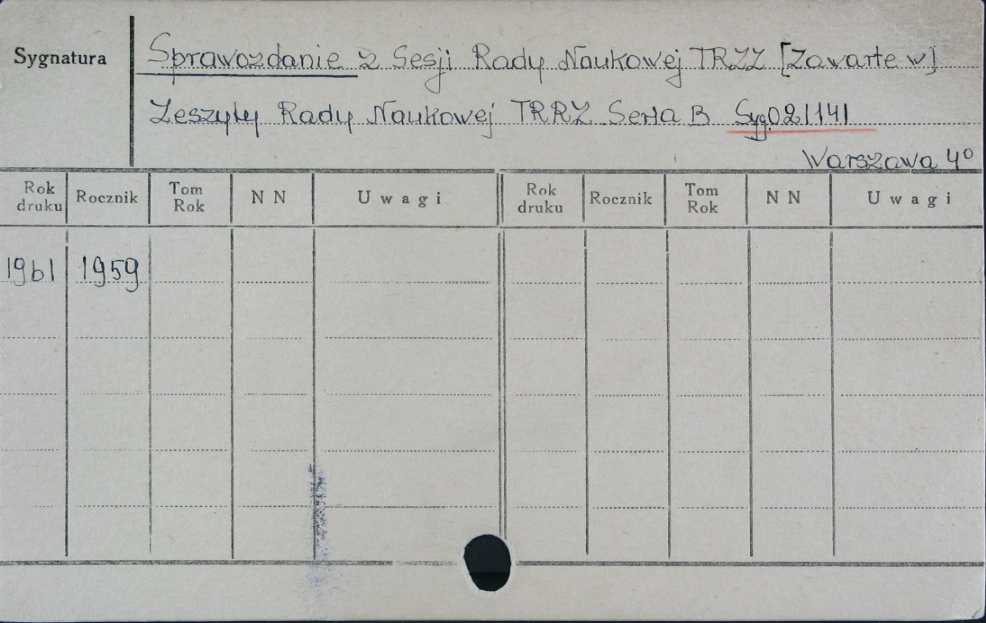 Sygnatura
Sprawozdanie z Sesji Rady Naukowej TRZZ [Zawarte w]
Zeszyty Rady Naukowej TRRZ Seria B Syg. 021141
Warszawa 4º
Rok druku Rocznik Tom Rok N N U w a g i Rok druku Rocznik Tom Rok N N U w a g i
1961 1959